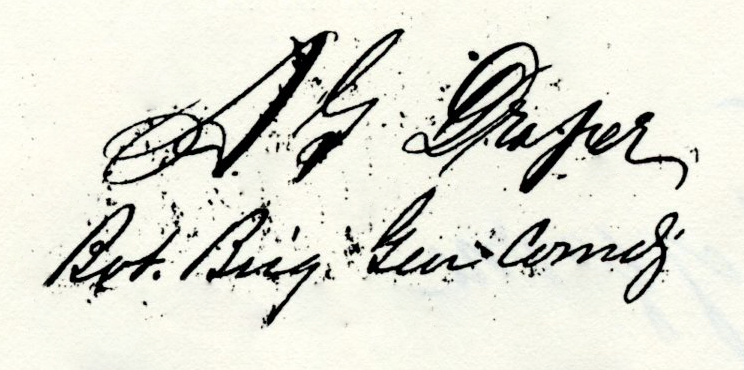 A G Draper,
Bvt. Brig. Gen. Comdg